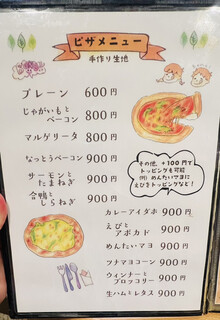 ピザメニュー
手作り生地
プレーン 600円
じゃがいもと
ベーコン 800円
マルゲリータ 800円
なっとうベーコン 900円
サーモンと
たまねぎ 900円
合鴨と
しらねぎ 900円
その他、+100円で
トッピングも可能
(例) めんたいマヨに
えびをトッピングなど!
カレーアイダホ 900円
えびと
アボカド 900円
めんたいマヨ 900円
ツナマヨコーン 900円
ウィンナーと
ブロッコリー 900円
生ハムとレタス 900円